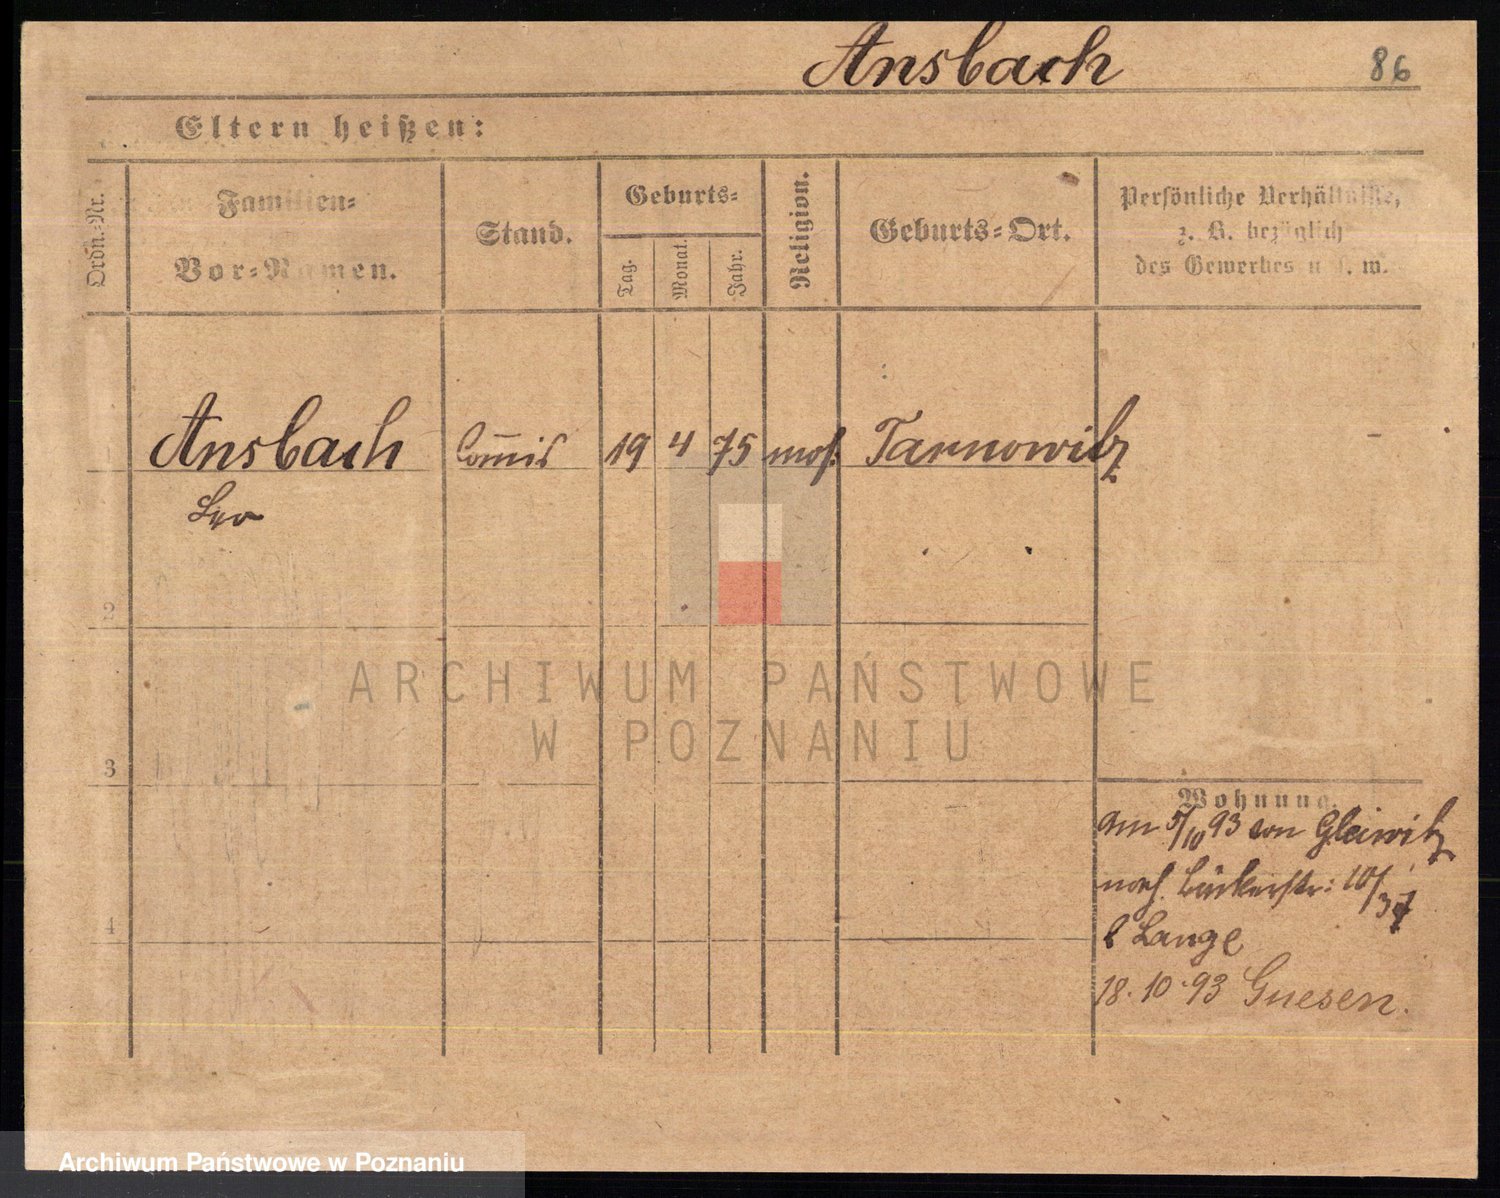 Ansbach 86
Eltern heißen:
Ordn.-Nr.
Familien-
Vor-Namen.
Stand.
Geburts-
Tag.
Monat.
Jahr.
Religion.
Geburts-Ort.
Persönliche Verhältnisse,
z. B. bezüglich
des Gewerbes u. s. w.
1 Ansbach Com̅is 19 4 75 mos. Tarnowitz
Leo
2
3
4
Wohnung.
am 5/10 93 von Gleiwitz
nach
Lange
18. 10. 93 Gnesen.
ARCHIWUM PAŃSTWOWE
W POZNANIU
Archiwum Państwowe w Poznaniu